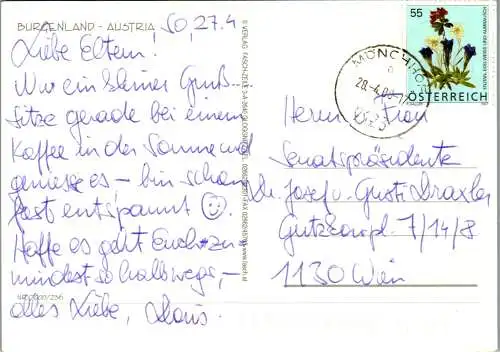 BURGENLAND - AUSTRIA
So, 27.4
Liebe Eltern!
Nur ein kleiner Gruß -
sitze gerade bei einem
Kaffee in der Sonne und
genieße es – bin schon
fast entspannt ☺.
Hoffe es geht Euch zu-
mindest so halbwegs, –
alles Liebe,
© VERLAG
55
ÖSTERREICH
MÖNCHHOF
Herrn Frau
Senatspräsidente
Dr. Josef u. Gusti Draxler
7/14/8
1130 Wien